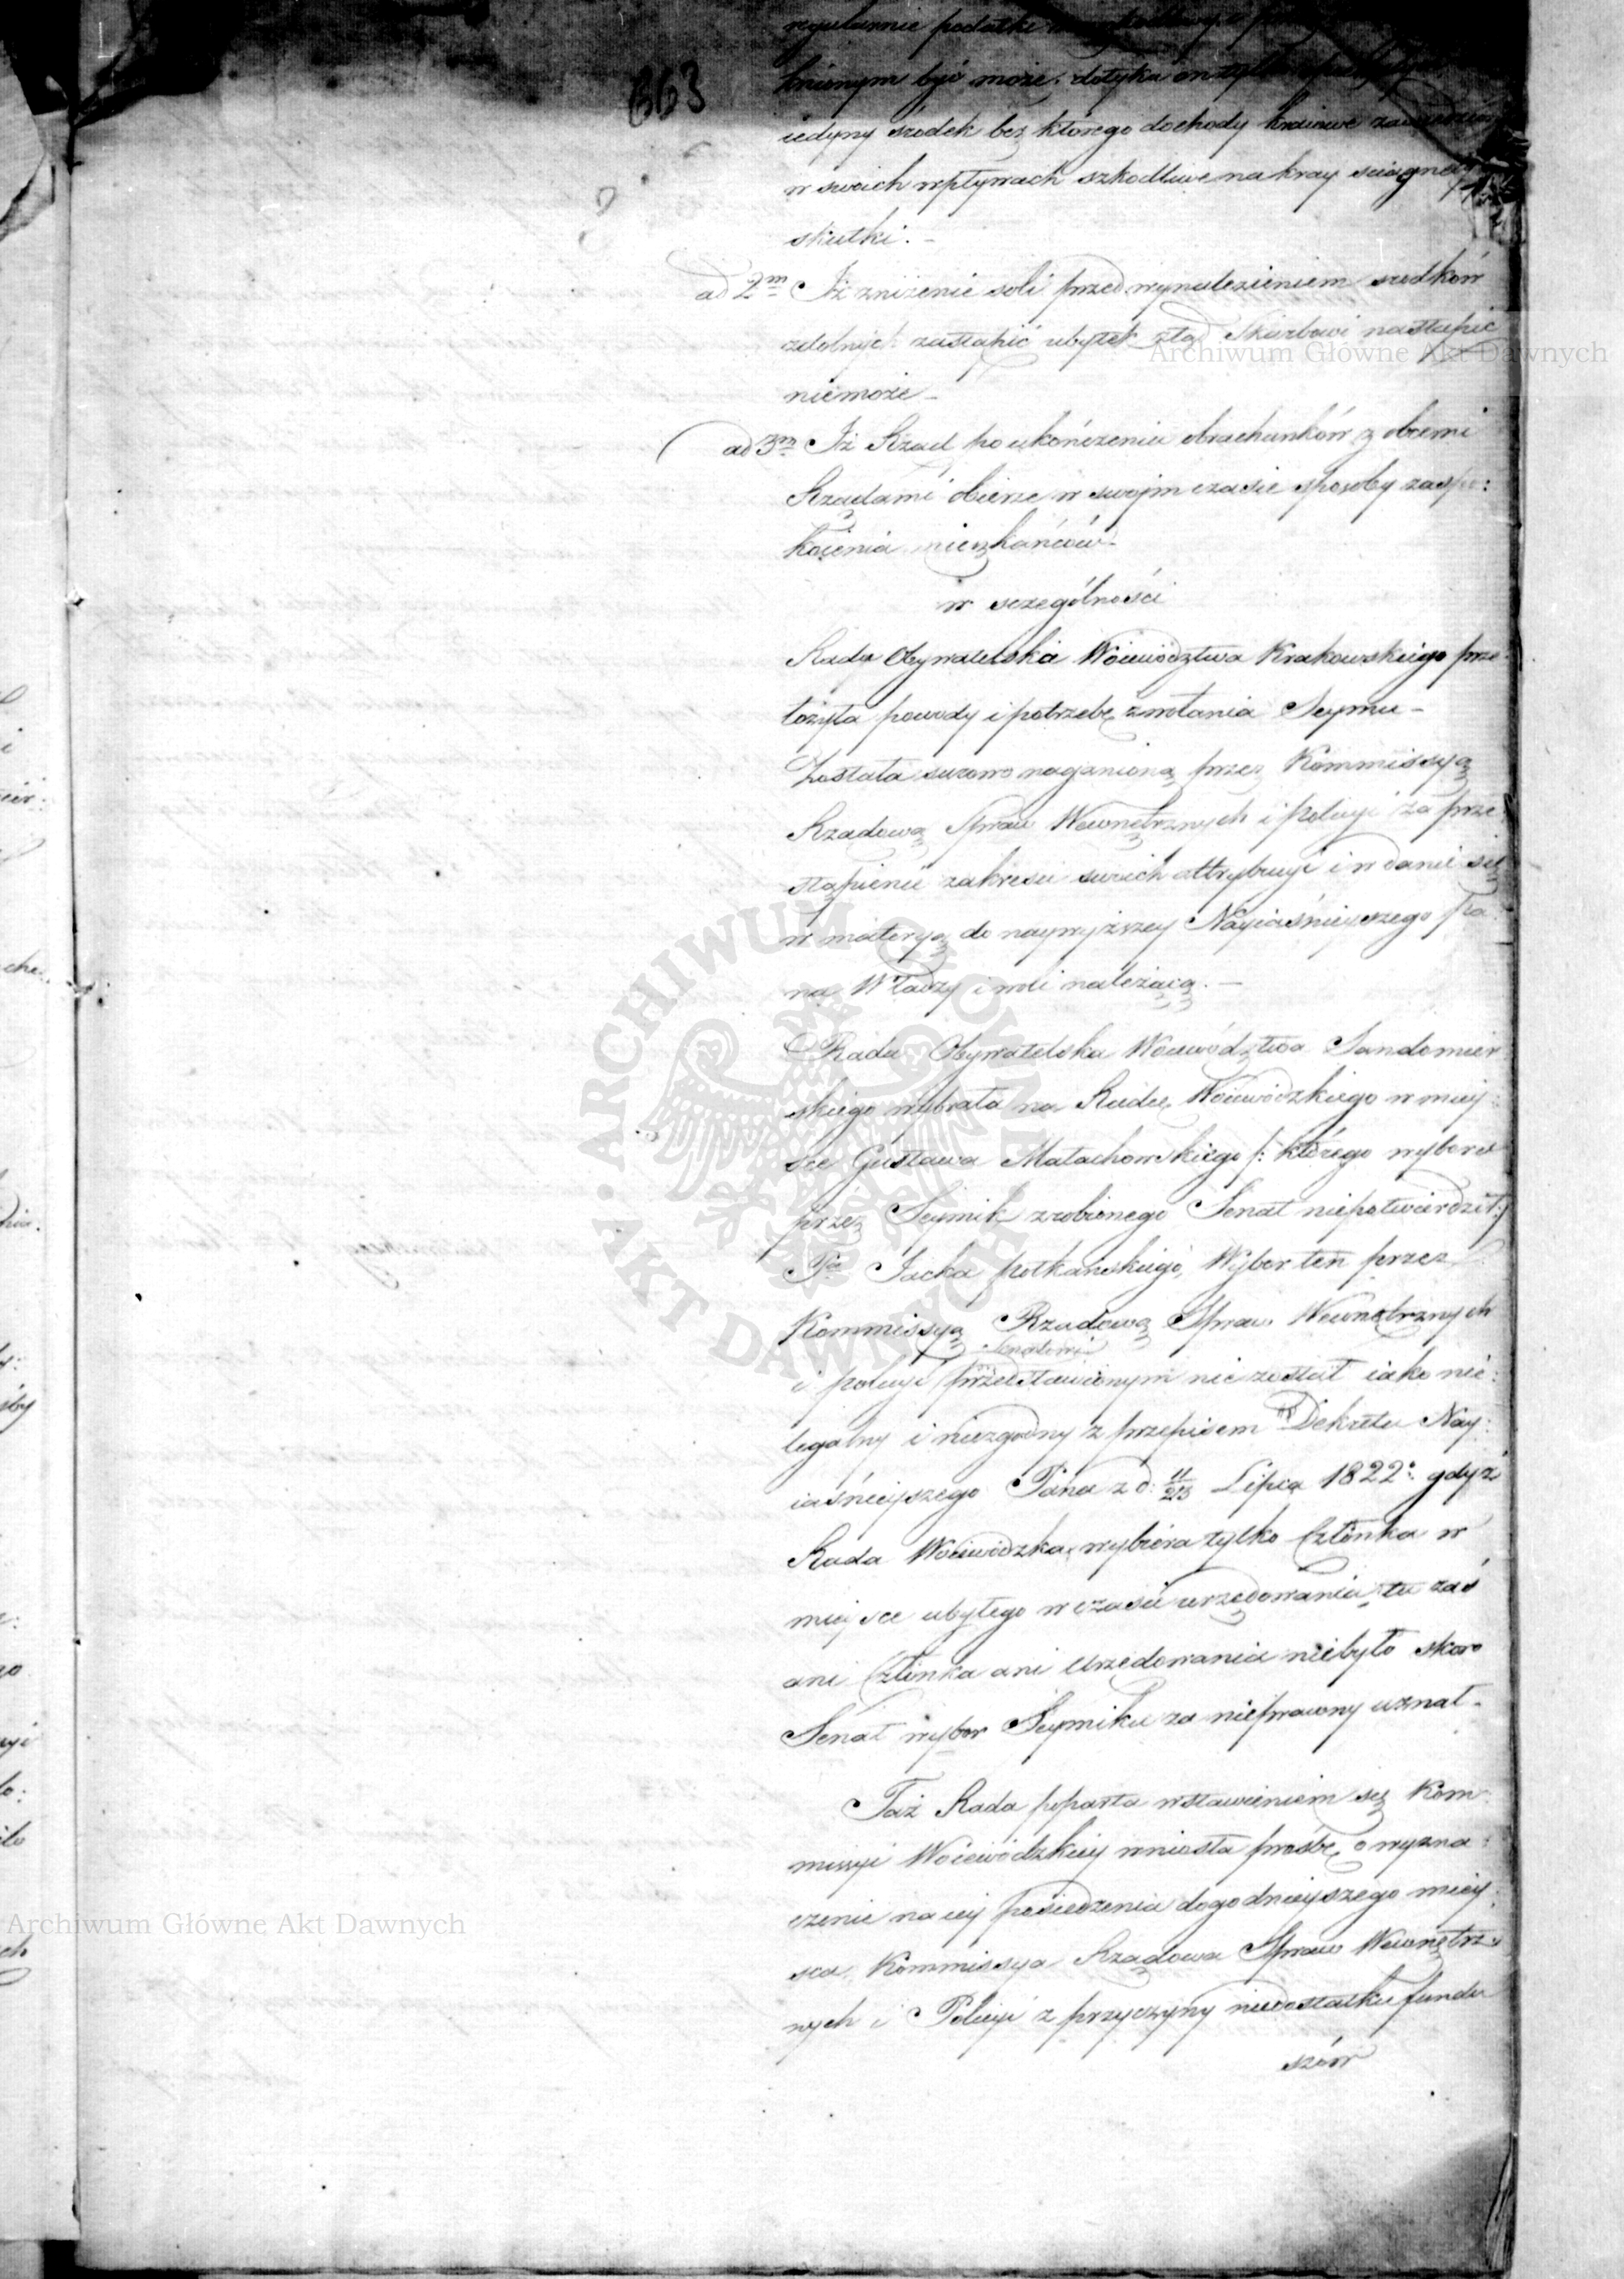 663
regularnie podatki
knionym być może: dotyka on tylko
iedyny środek bez którego dochody kraiowe
w swoich wpływach szkodliwe na kray sciągnę
skutki. –
ad 2m Iż zniżenie soli przed wynalezieniem srodków
zdolnych zastąpić ubytek ztąd Skarbowi nastąpić
niemoże –
ad 3m Iż Rząd po ukończeniu obrachunków z obcemi
Rządami obierze w swojm czasie sposoby zaspo:
koienia mieszkańców –
w sczególności
Rada Obywatelska Woiewództwa Krakowskiego prze
łożyła powody i potrzebę zwołania Seymu –
Została surowo naganioną przez Kommissyą
Rządową Spraw Wewnętrznych i Policyi za prze
stąpienie zakresu swoich attrybucyi i wdanie się
w materyą do naywyższey Nayiaśnieyszego Pa:
na Władzy i woli należącą. –
Rada Obywatelska Woiewództwa Sandomier
skiego wybrała na Radcę Woiewódzkiego w miey:
sce Gustawa Małachowskiego /: którego wyboru
przez Seymik zrobionego Senat niepotwierdził :/
Pa Jacka Potkańskiego, Wybor ten przez
Kommissyą Rządową Spraw Wewnętrznych
i Policyi Senatowi przedstawionym nie został iako nie:
legalny i niezgodny z przepisem Dekretu Nay:
iaśnieyszego Pana z d: 11/23 Lipca 1822 r: gdyż
Rada Woiewódzka wybiera tylko Członka w
mieysce ubyłego w czasie urzędowania, tu zaś
ani Członka ani Urzędowania niebyło skoro
Senat wybor Seymiku za nieprawny uznał –
Taż Rada poparta wstawieniem się Kom:
missyi Woiewódzkiey wniosła prośbę o wyzna:
czenie na iey posiedzenia dogodnieyszego miey:
sca, Kommissya Rządowa Spraw Wewnętrz:
nych i Policyi z przyczyny niedostatku fundu
szów
Archiwum Główne Akt Dawnych
Archiwum Główne Akt Dawnych
ARCHIWUM GŁÓWNE AKT DAWNYCH